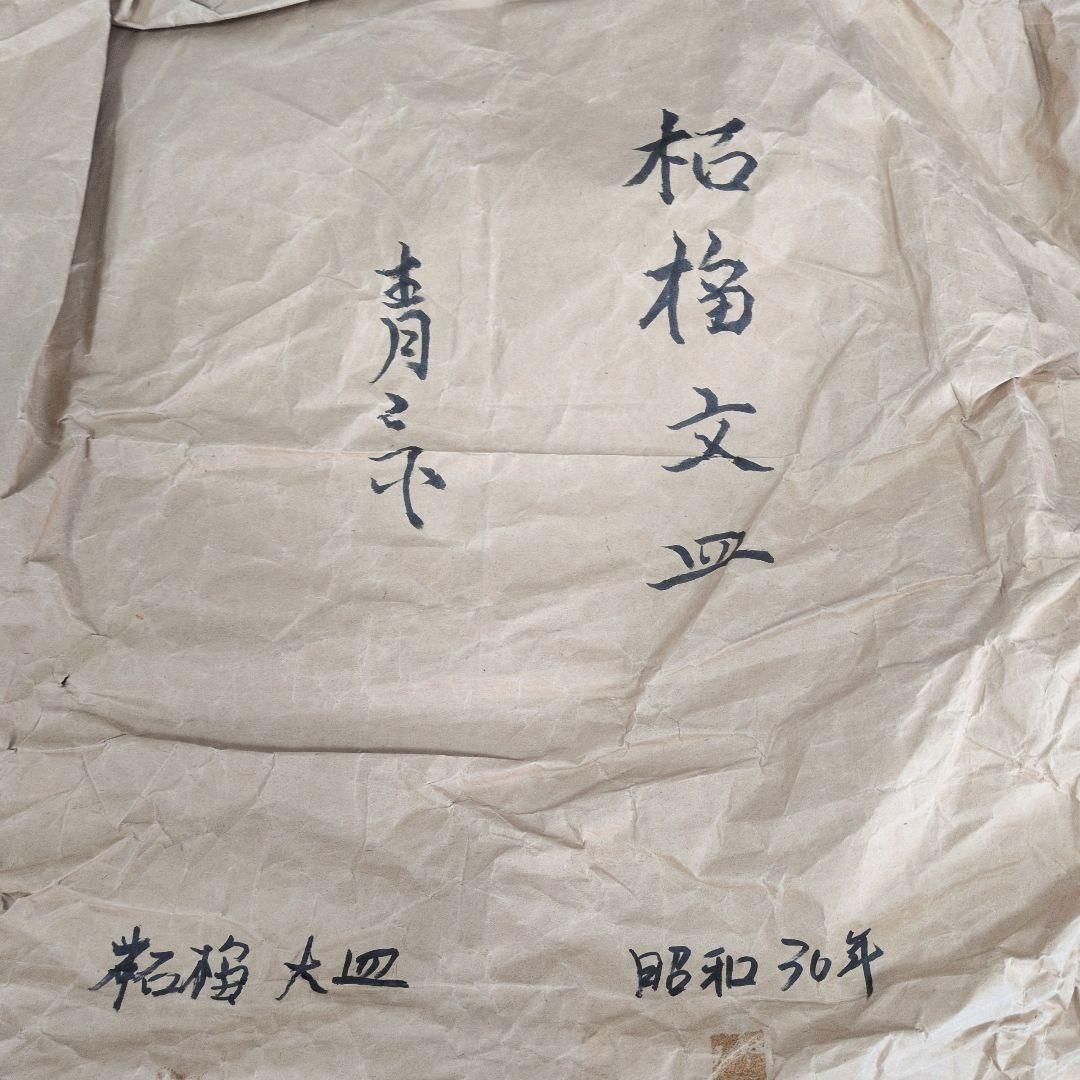 柘榴文皿
青々下
柘榴大皿
昭和36年